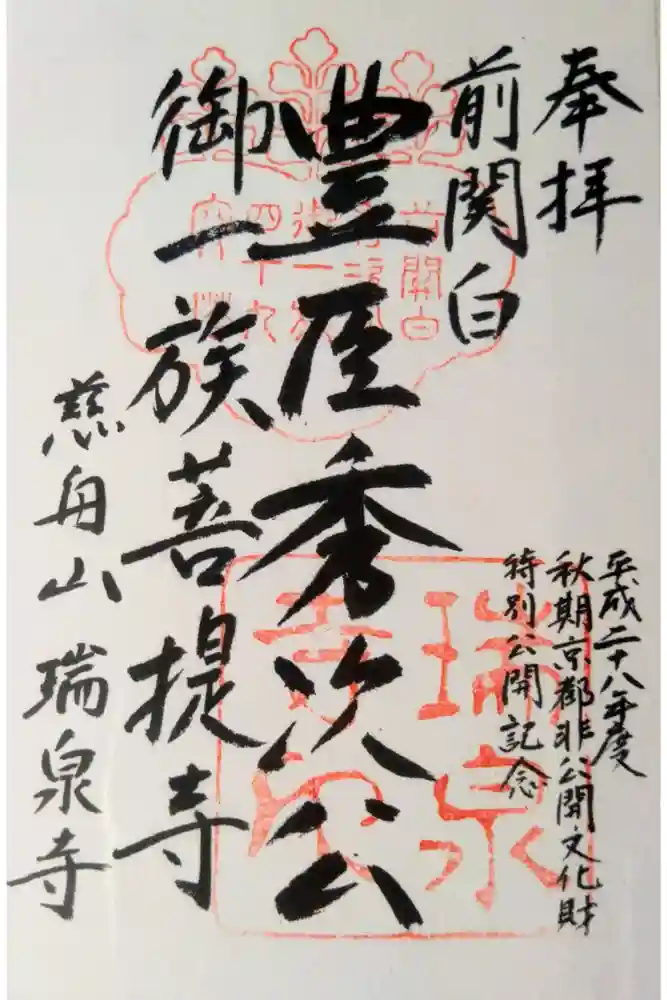 奉拝
平成二十八年度
秋期京都非公開文化財
特別公開記念
前関白
豊臣秀次公
御一族菩提寺
慈舟山 瑞泉寺
瑞泉
寺印